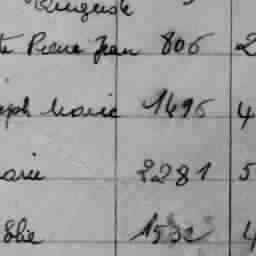 Auguste
Pierre Jean 806 2
Joseph Marie 1495 4
Marie 2281 5
Elie 1532 4